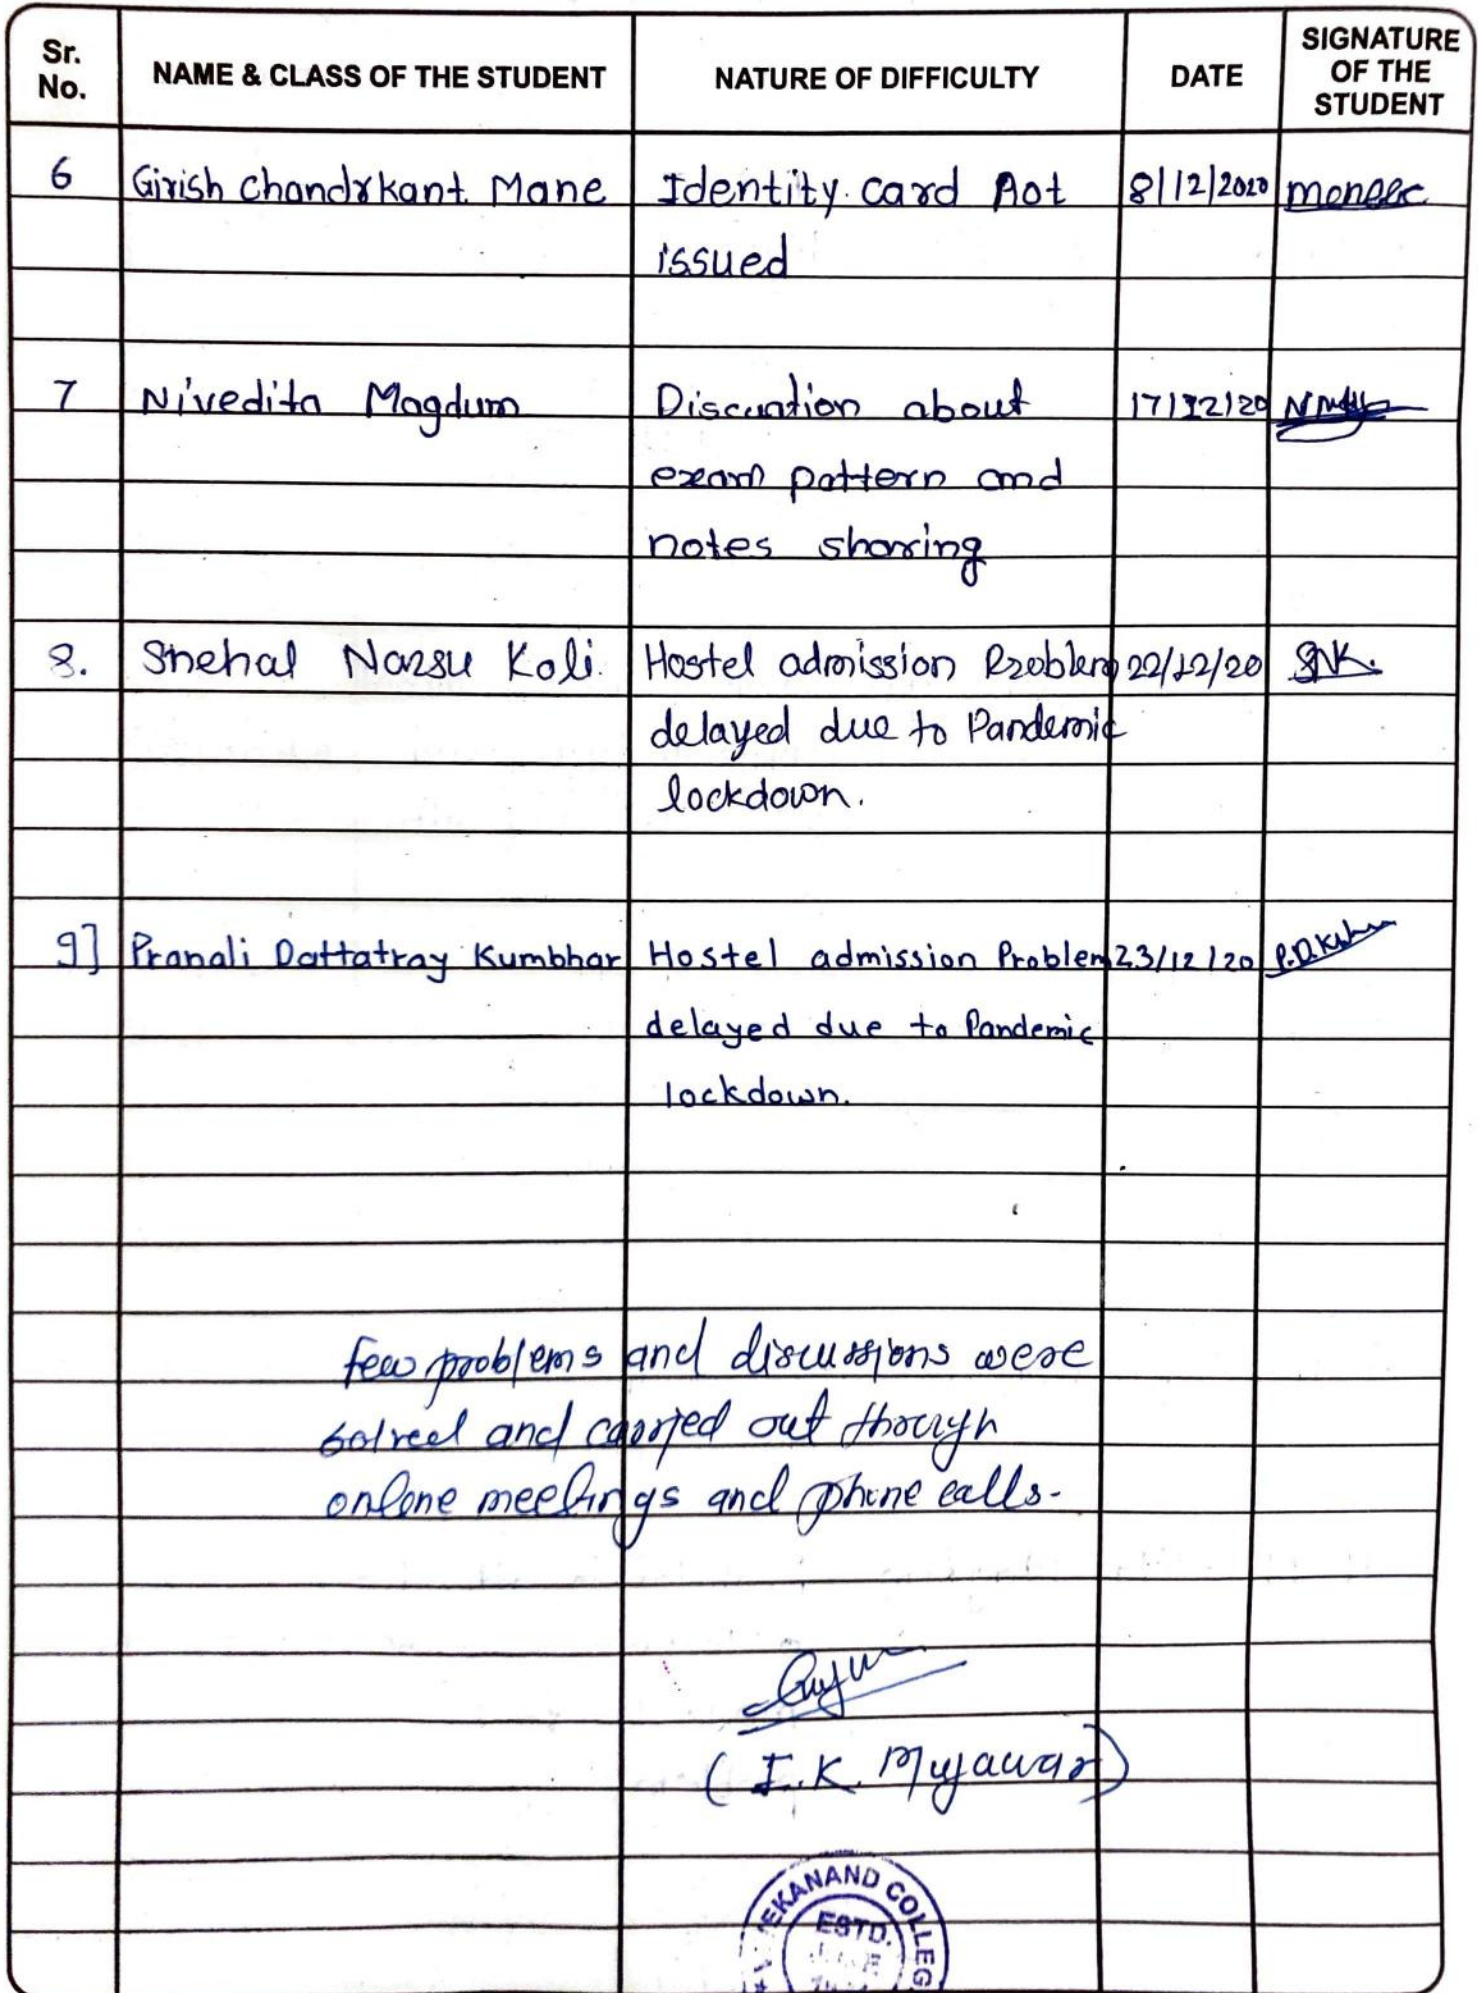 Sr. No.
NAME & CLASS OF THE STUDENT
NATURE OF DIFFICULTY
DATE
SIGNATURE OF THE STUDENT
6 Girish Chandrkant Mane Identity card not 8/12/2020
issued
7 Nivedita Magdum Discustion about 17/12/20
exam pattern and
notes sharing
8. Snehal Narsu Koli. Hostel admission Problem 22/12/20 SNK.
delayed due to Pandemic
lockdown.
9] Pranali Dattatray Kumbhar Hostel admission Problem 23/12/20
delayed due to Pandemic
lockdown.
Few problems and discussions were
solved and carried out through
online meetings and phone calls.
(I.K. Mujawar)
EKANAND COLLEG
ESTD.